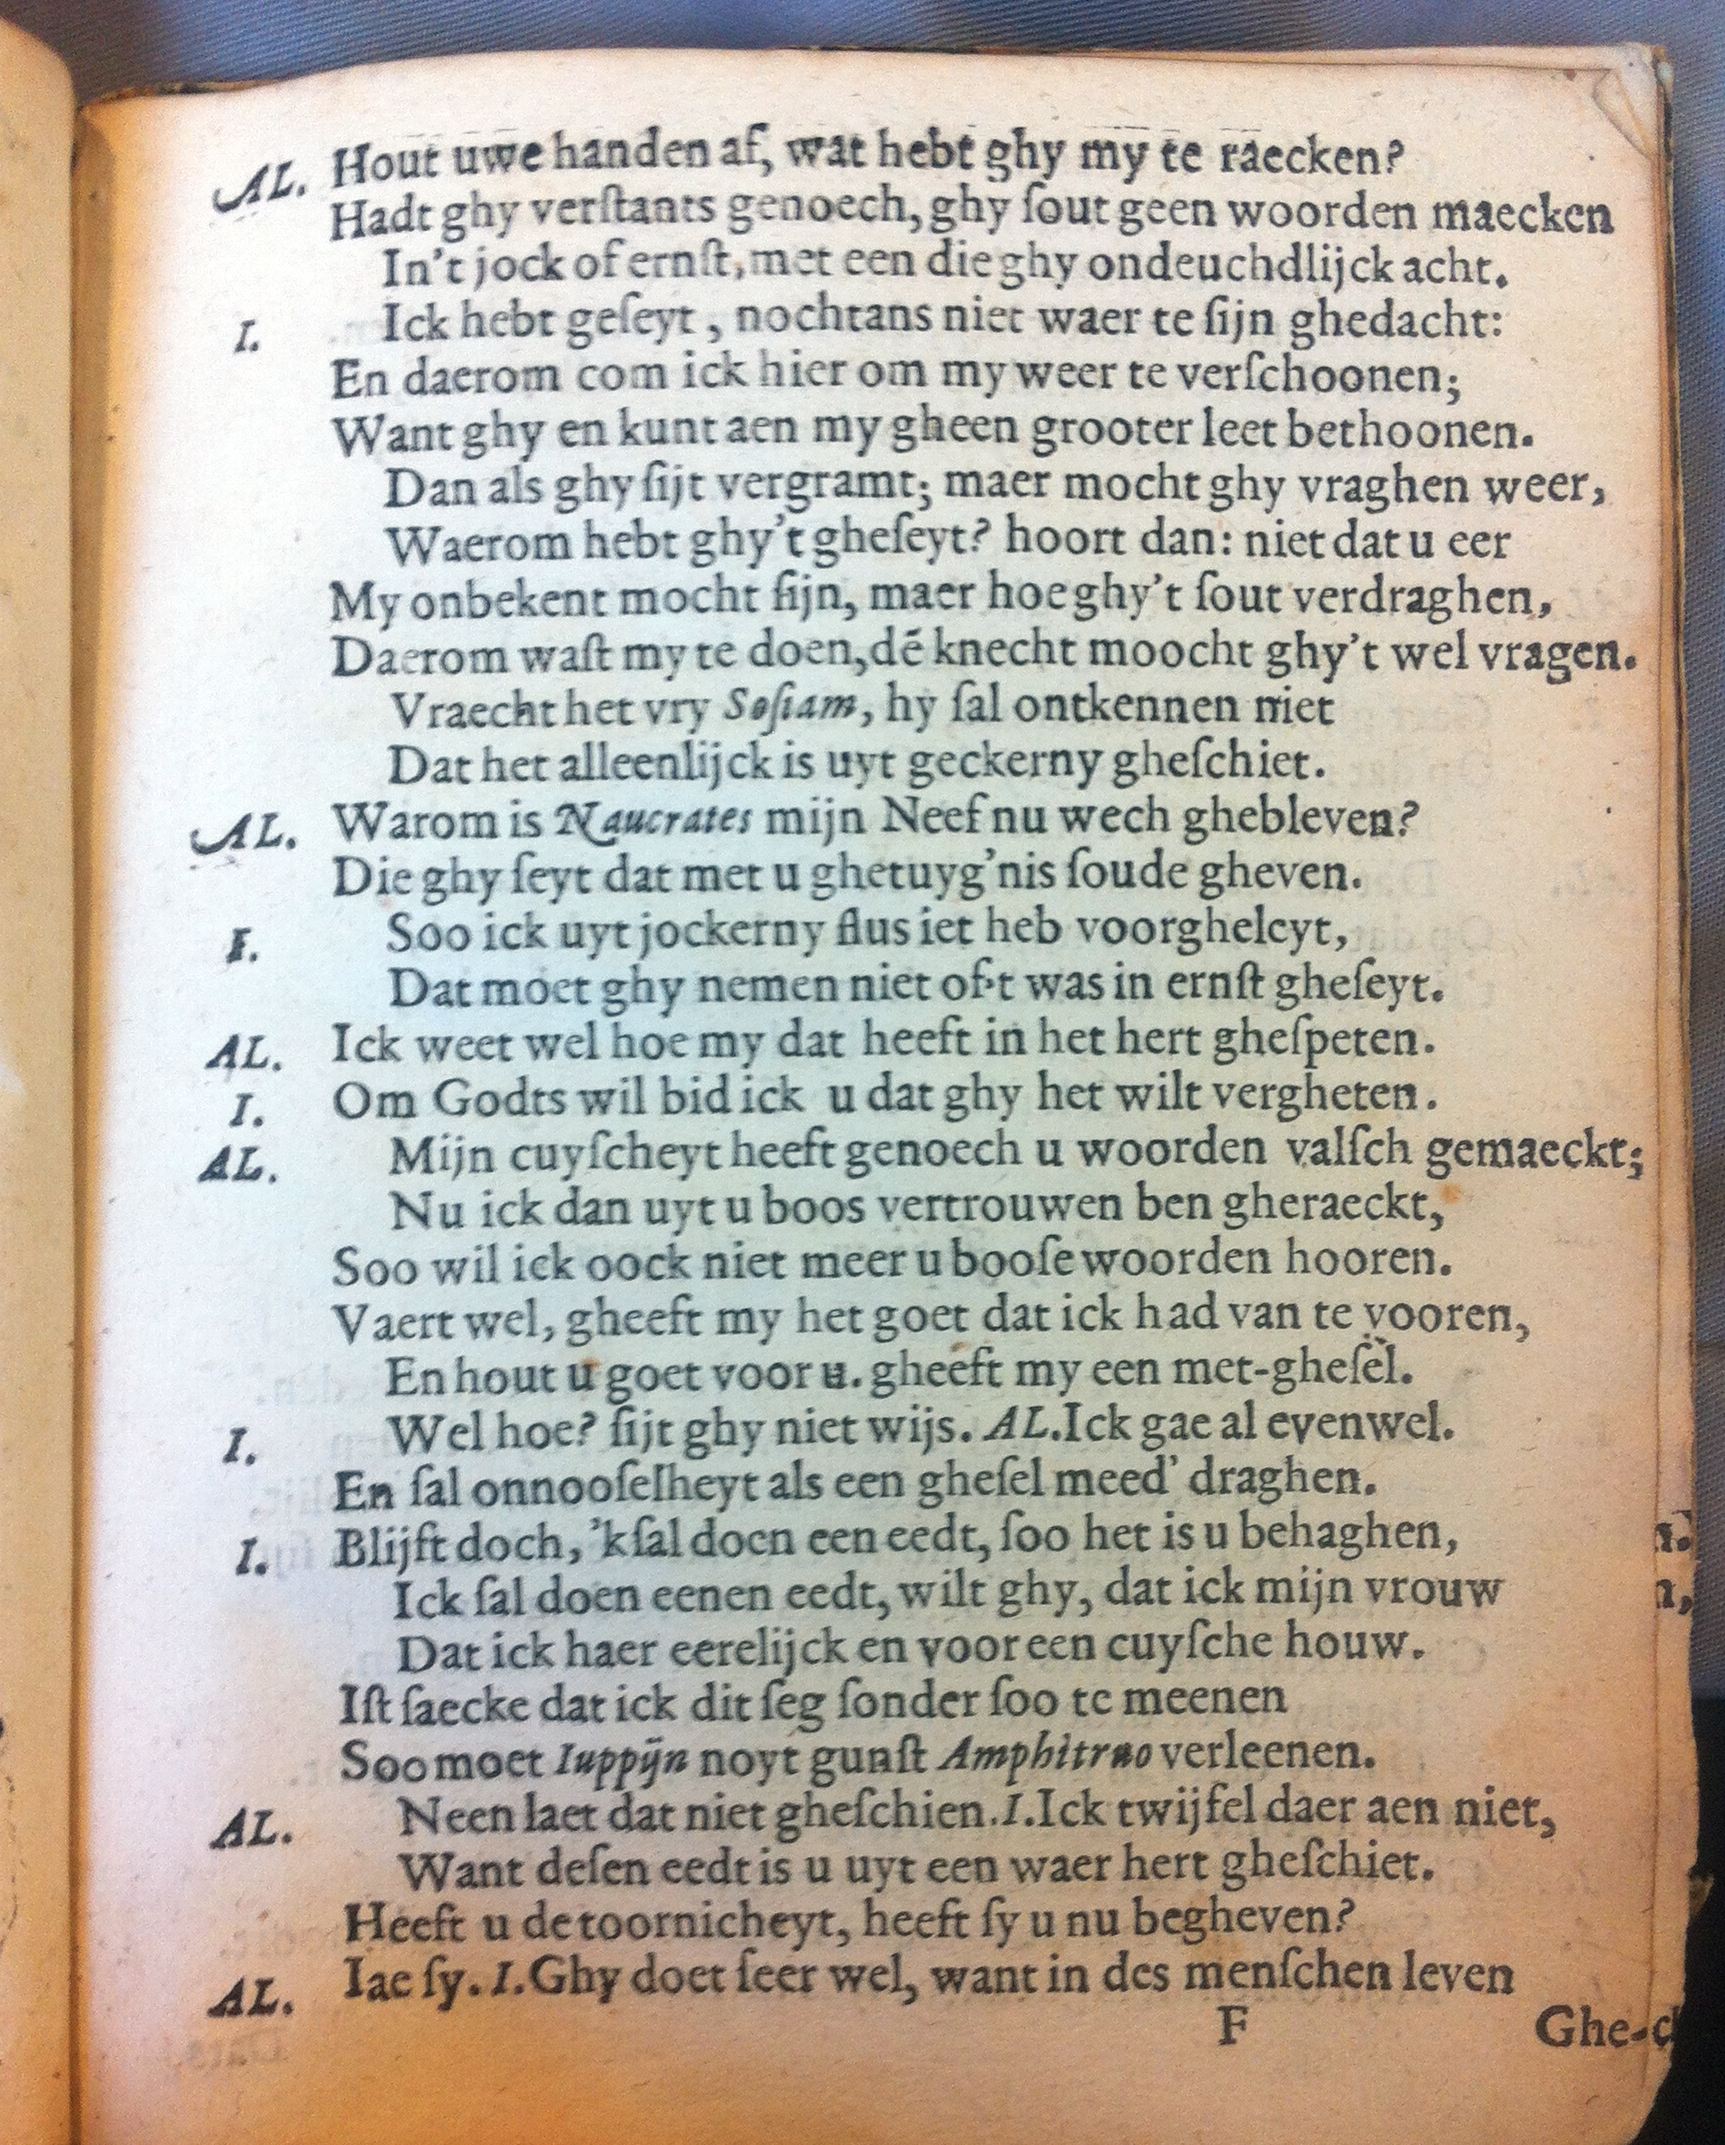 AL. Hout uwe handen af, wat hebt ghy my te raecken?
Hadt ghy verſtants genoech, ghy ſout geen woorden maecken
In't jock of ernſt, met een die ghy ondeuchdlijck acht.
I. Ick hebt geſeyt, nochtans niet waer te ſijn ghedacht:
En daerom com ick hier om my weer te verſchoonen;
Want ghy en kunt aen my gheen grooter leet bethoonen.
Dan als ghy ſijt vergramt; maer mocht ghy vraghen weer,
Waerom hebt ghy't gheſeyt? hoort dan: niet dat u eer
My onbekent mocht ſijn, maer hoe ghy't ſout verdraghen,
Daerom waſt my te doen, dē knecht moocht ghy't wel vragen.
Vraecht het vry Soſiam, hy ſal ontkennen niet
Dat het alleenlijck is uyt geckerny gheſchiet.
AL. Warom is Naucrates mijn Neef nu wech ghebleven?
Die ghy ſeyt dat met u ghetuyg'nis ſoude gheven.
I. Soo ick uyt jockerny flus iet heb voorgheleyt,
Dat moet ghy nemen niet of't was in ernſt gheſeyt.
AL. Ick weet wel hoe my dat heeft in het hert gheſpeten.
I. Om Godts wil bid ick u dat ghy het wilt vergheten.
AL. Mijn cuyſcheyt heeft genoech u woorden valſch gemaeckt;
Nu ick dan uyt u boos vertrouwen ben gheraeckt,
Soo wil ick oock niet meer u booſe woorden hooren.
Vaert wel, gheeft my het goet dat ick had van te vooren,
En hout u goet voor u. gheeft my een met-gheſel.
I. Wel hoe? ſijt ghy niet wijs. AL. Ick gae al evenwel.
En ſal onnooſelheyt als een gheſel meed' draghen.
I. Blijft doch, 'kſal doen een eedt, ſoo het is u behaghen,
Ick ſal doen eenen eedt, wilt ghy, dat ick mijn vrouw
Dat ick haer eerelijck en voor een cuyſche houw.
Iſt ſaecke dat ick dit ſeg ſonder ſoo te meenen
Soo moet Iuppijn noyt gunſt Amphitruo verleenen.
AL. Neen laet dat niet gheſchien. I. Ick twijfel daer aen niet,
Want deſen eedt is u uyt een waer hert gheſchiet.
Heeft u de toornicheyt, heeft ſy u nu begheven?
AL. Iae ſy. I. Ghy doet ſeer wel, want in des menſchen leven
F Ghe-